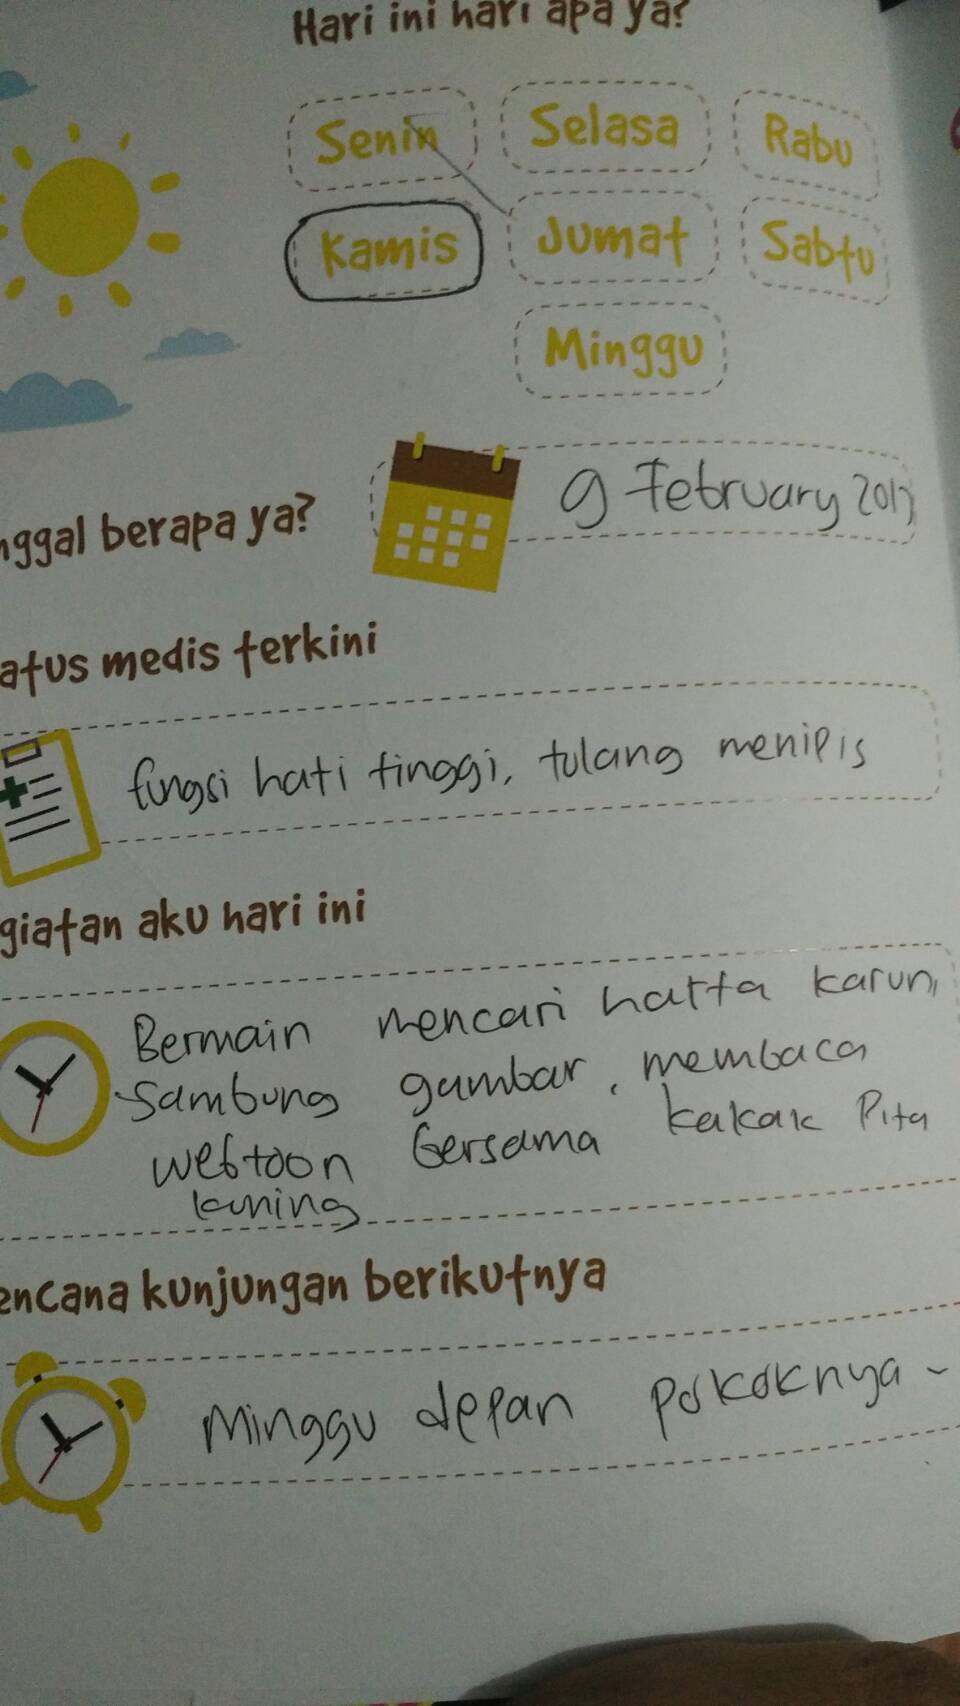 Hari ini hari apa ya?
Senin Selasa Rabu
Kamis Jumat Sabtu
Minggu
nggal berapa ya?
9 February 2017
atus medis terkini
fungsi hati tinggi, tulang menipis
giatan aku hari ini
Bermain mencari harta karun,
Sambung gambar, membaca
webtoon bersama kakak Pita
kuning
encana kunjungan berikutnya
Minggu depan pokoknya ~